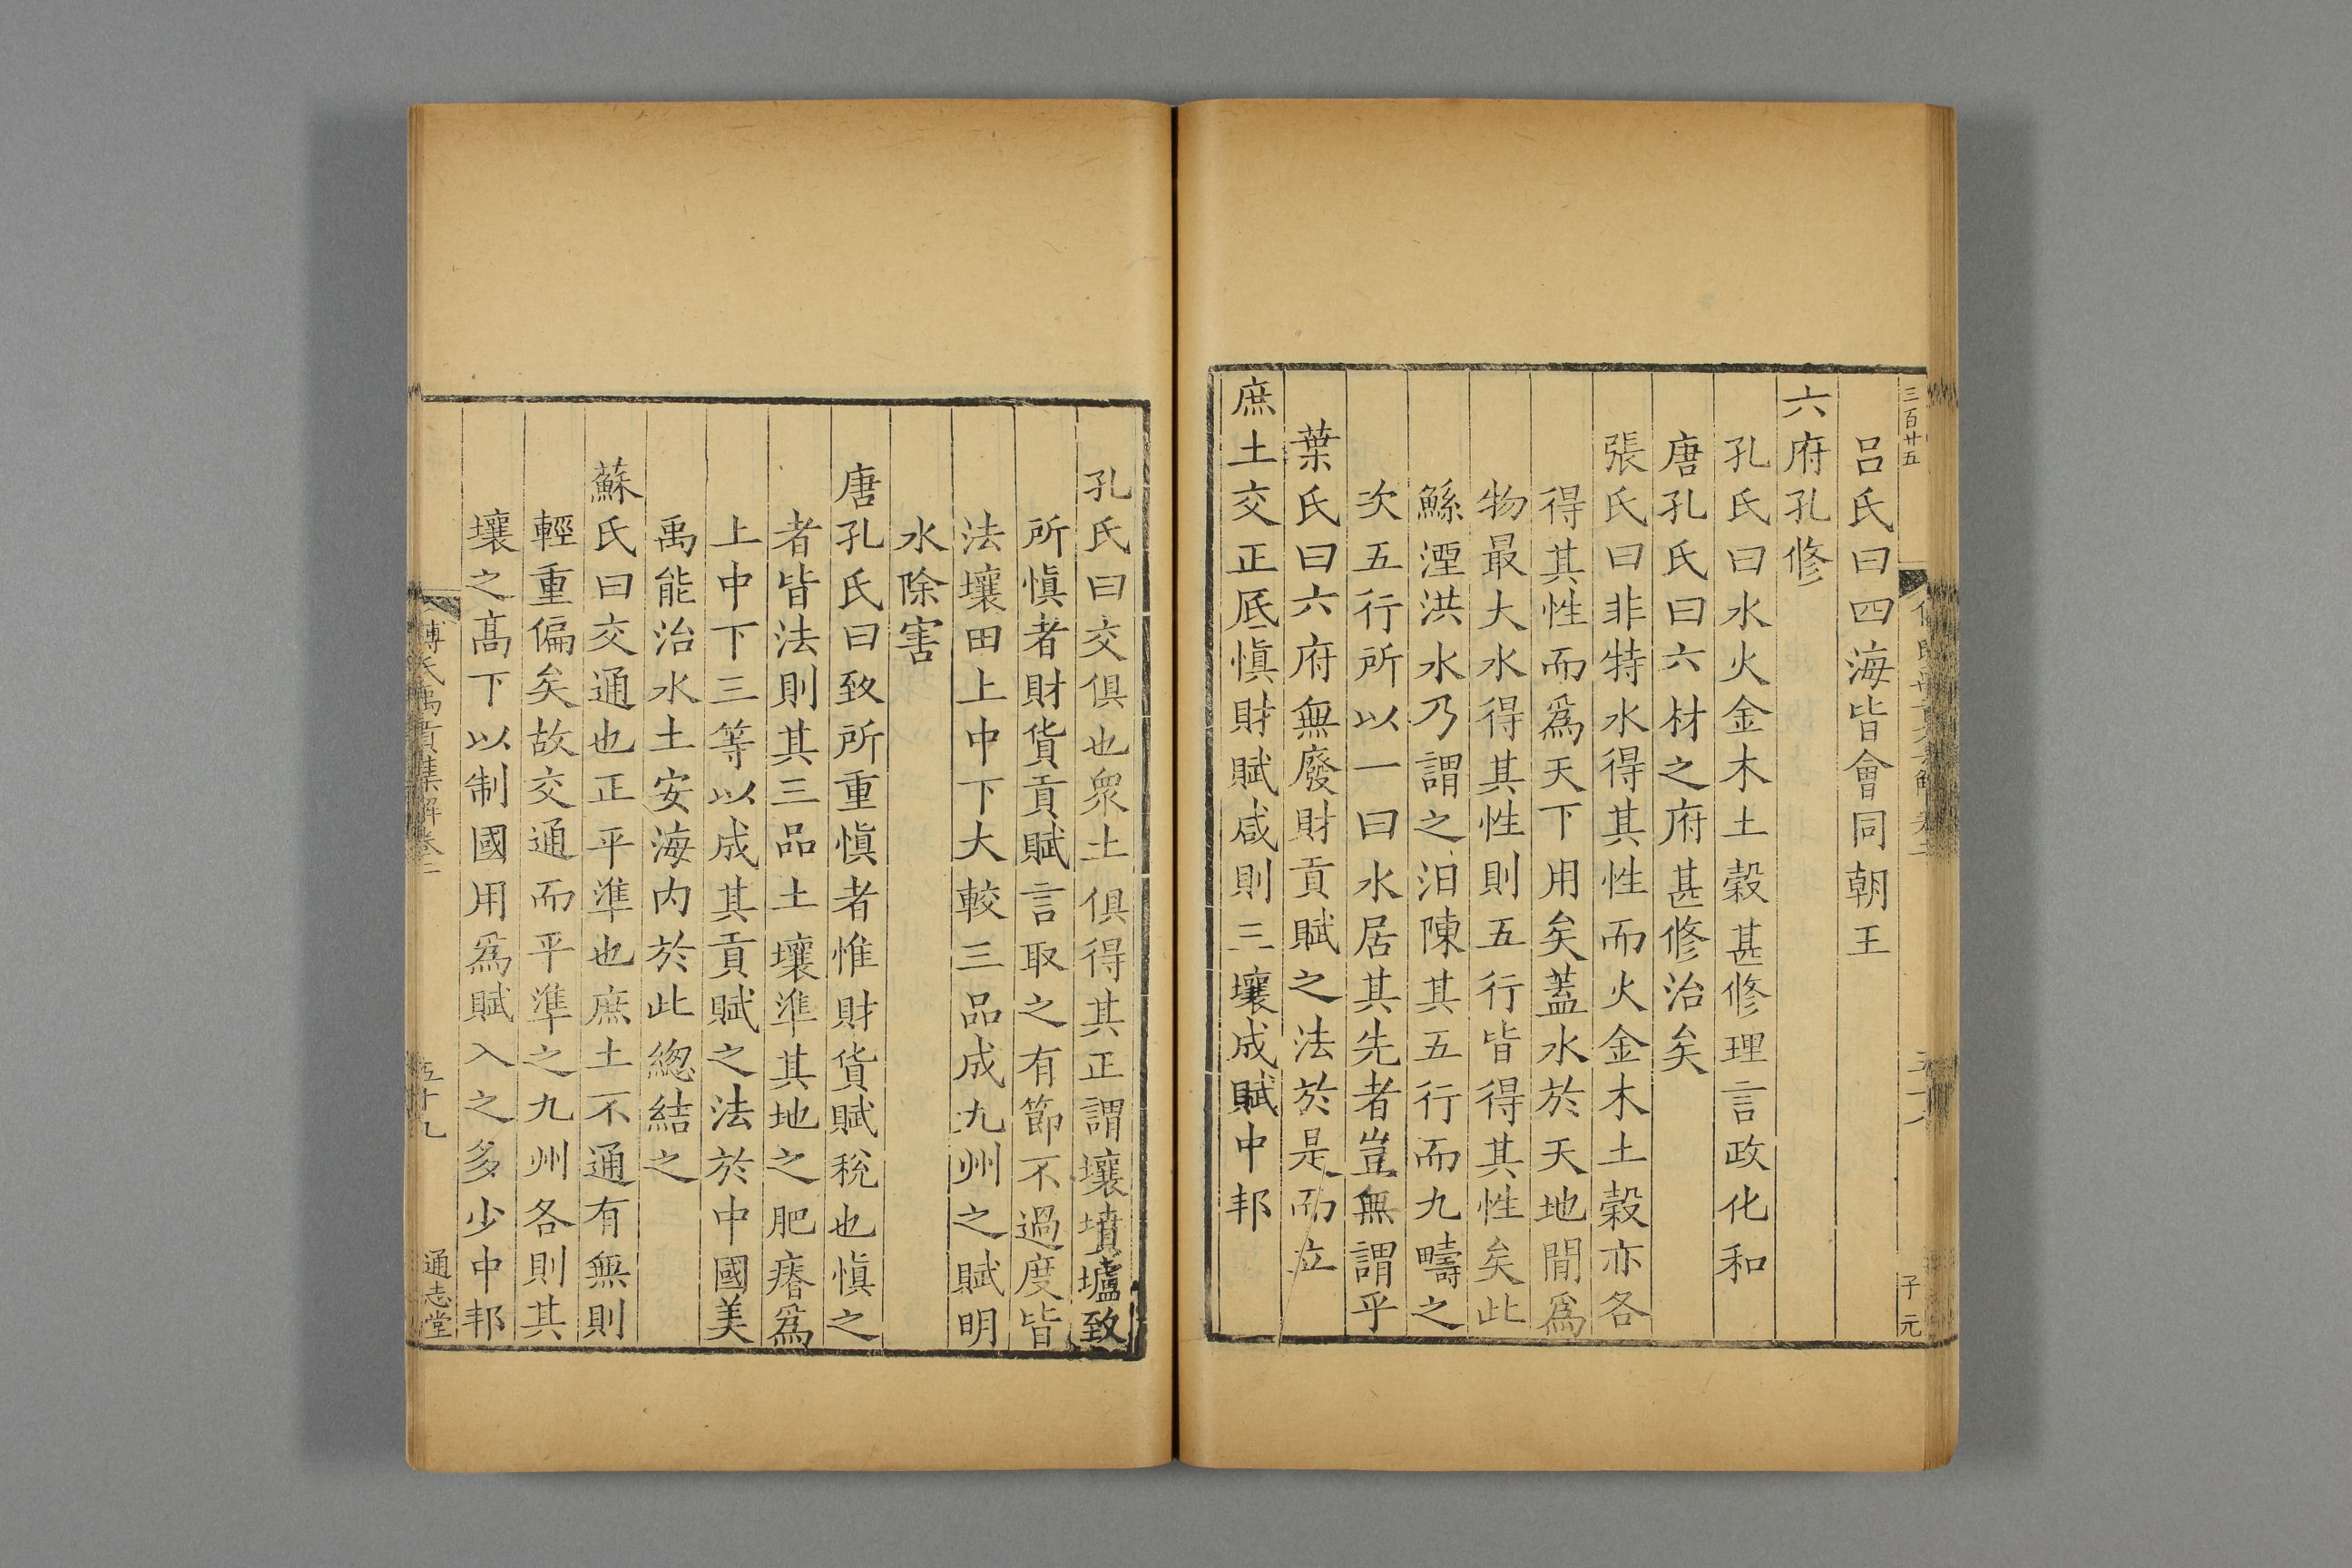 三百廿五
子元
呂氏曰四海皆會同朝王
六府孔修
孔氏曰水火金木土穀甚修理言政化和
唐孔氏曰六材之府甚修治矣
張氏曰非特水得其性而火金木土穀亦各
得其性而爲天下用矣蓋水於天地閒爲
物最大水得其性則五行皆得其性矣此
鯀湮洪水乃謂之汩陳其五行而九疇之
次五行所以一曰水居其先者豈無謂乎
葉氏曰六府無廢財貢賦之法於是而立
庶土交正厎愼財賦咸則三壤成賦中邦
孔氏曰交俱也衆土俱得其正謂壤墳壚致
所愼者財貨貢賦言取之有節不過度皆
法壤田上中下大較三品成九州之賦明
水除害
唐孔氏曰致所重愼者惟財貨賦稅也愼之
者皆法則其三品土壤準其地之肥瘠爲
上中下三等以成其貢賦之法於中國美
禹能治水土安海内於此總結之
蘇氏曰交通也正平準也庶土不通有無則
輕重偏矣故交通而平準之九州各則其
壤之髙下以制國用爲賦入之多少中邦
傅氏禹貢集解卷二
五十九
通志堂